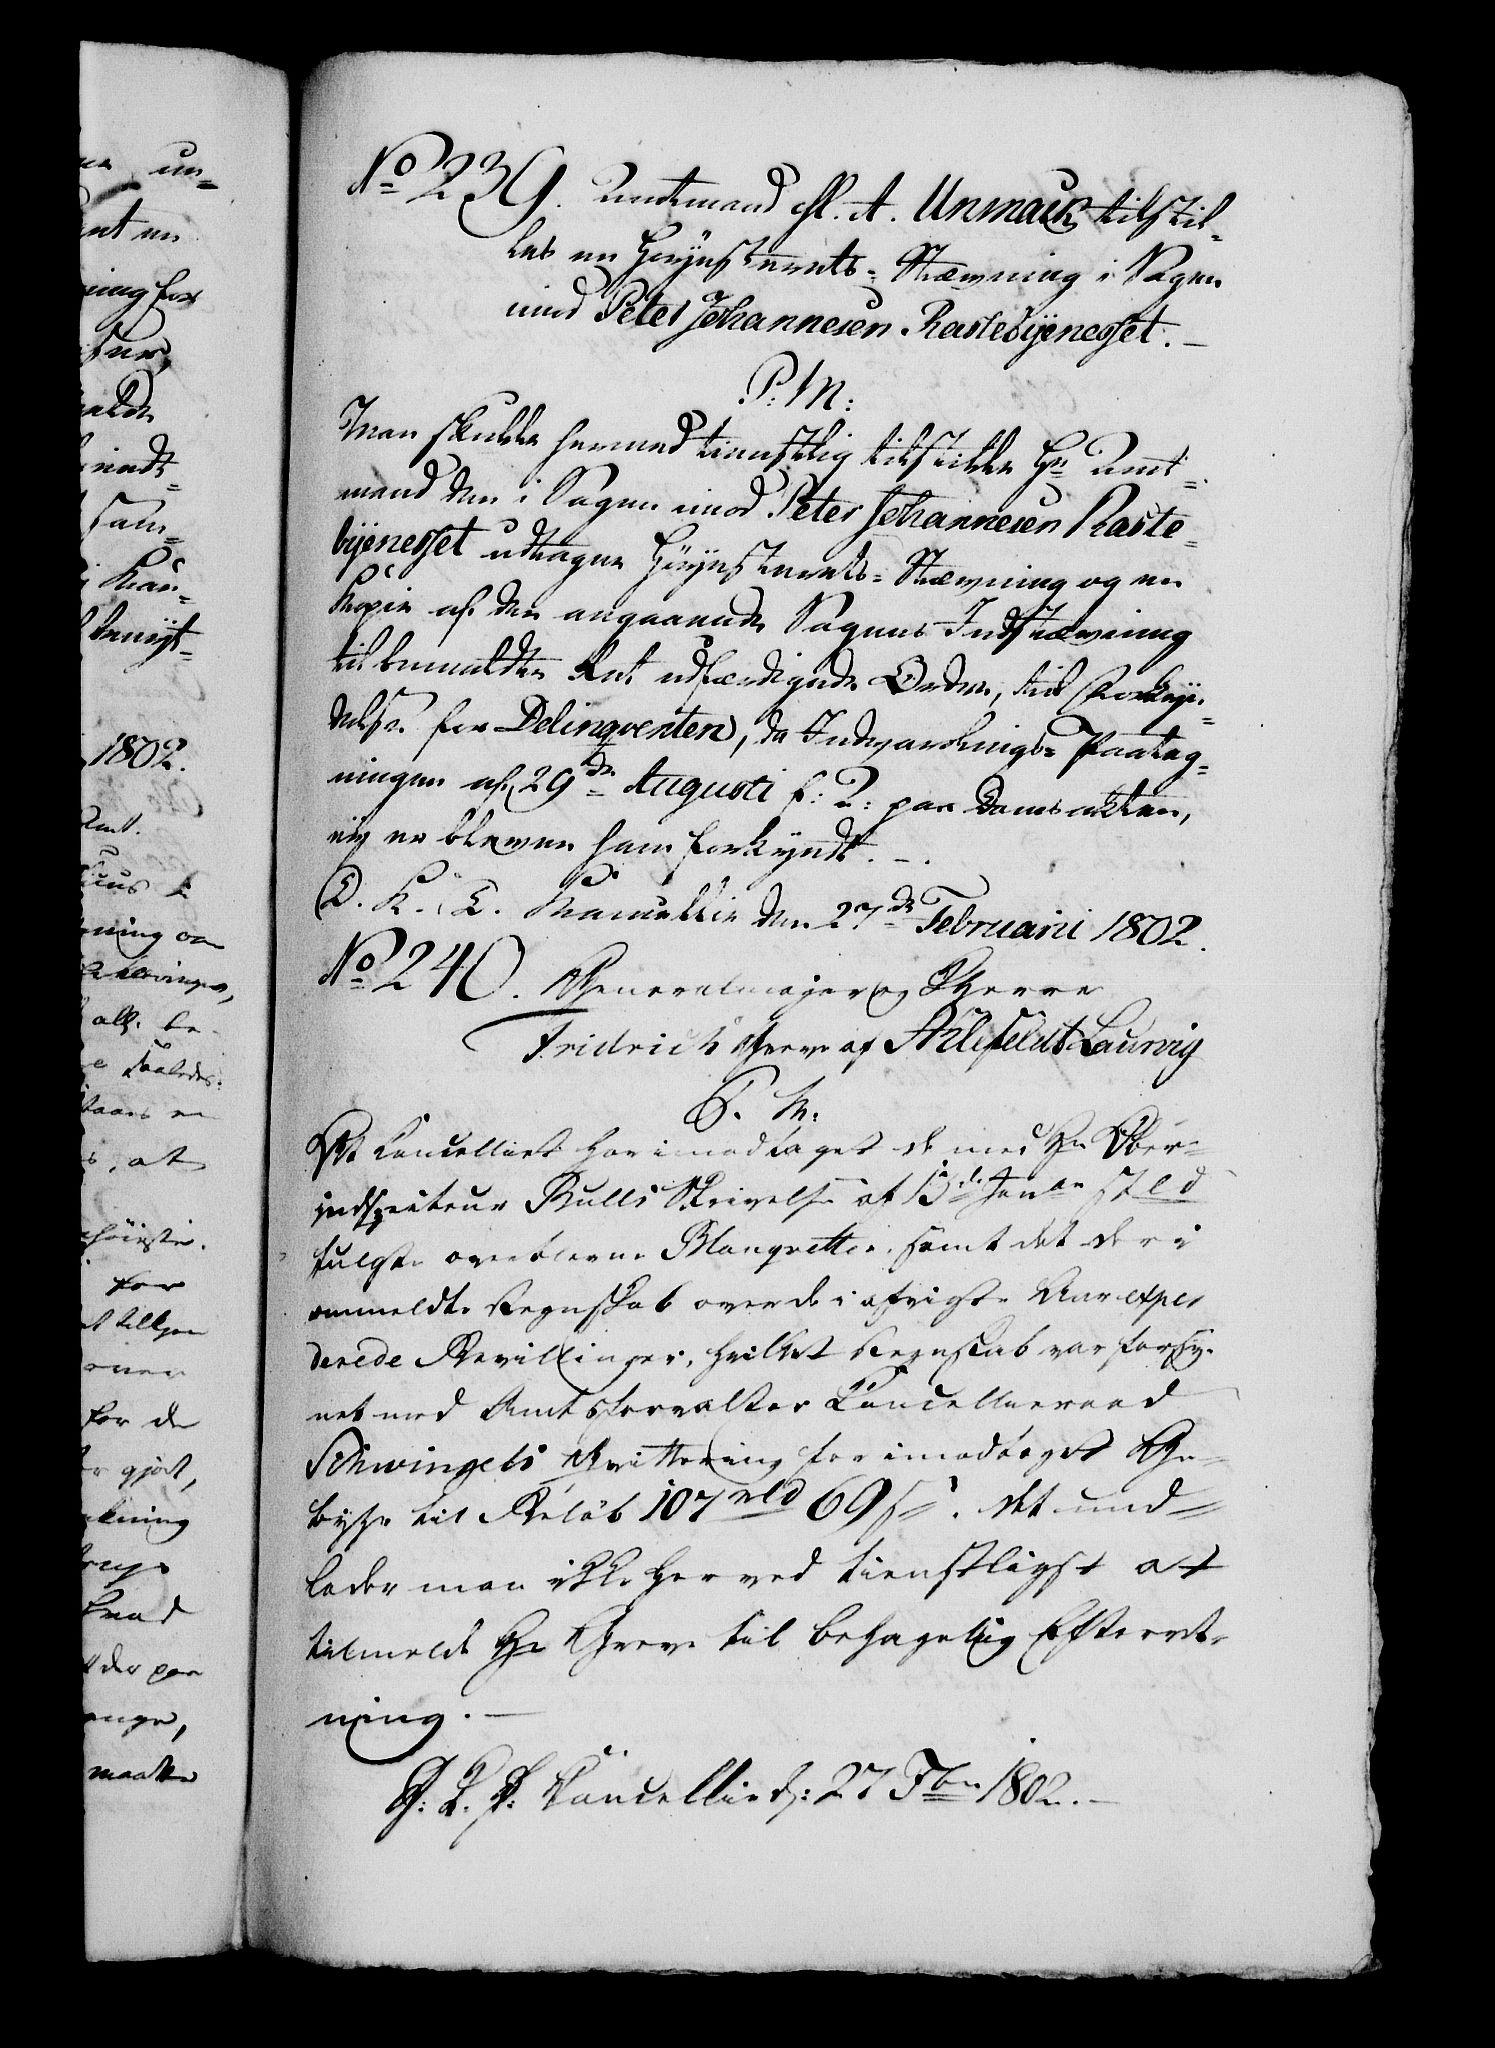 No 239. Amtmand M. A. Unmack tilstil-
les en Høyesterets-Stævning i Sagen
imod Peter Johannesen Rastebyenesset. –
P. M:
Man skulle hermed tienstlig tilstille Hr Amt-
mand den i Sagen imod Peter Johannesen Raste-
byenesset udtagne Høyesterets-Stævning og en
Kopie af den angaaende Sagens Indstævning
til bemeldte Ret udfærdigede Ordre, til Forkyn-
delse for Delinqventen, da Indvarslings-Paateg-
ningen af 29de Augusti f: A: paa Domsakten,
ey er bleven ham forkyndt. –
D. K. C. Kancellie den 27de Februarii 1802.
No 240. Generalmajor og Herre
Fridrich Greve af Ahlefeldt Laurvig
P. M:
Det Cancelliet har imodtaget de med Hr Over-
indspecteur Bulls Skrivelse af 15de Janar sidst
fulgte overblevne Blanqvetter, samt det deri
anmeldte Regnskab over de i afvigte Aar expe-
derede Bevillinger, hvilket Regnskab var forsy-
net med Amtsforvalter Cancelleeraad
Schwingels Qvittering for imodtaget Ge-
byhr til Beløb 107 rld 69 s. det und-
lader man ikke herved tienstligst at
tilmelde Hr Greve til behagelig Efterret-
ning. –
Cancellie d: 27 Fbr 1802. –
1802.